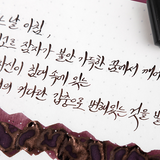 느 날 아침,
잠자가 불안 가득한 꿈에서 깨어
자신이 침대 속에 있는
커다란 갑충으로 변해있는 것을 발